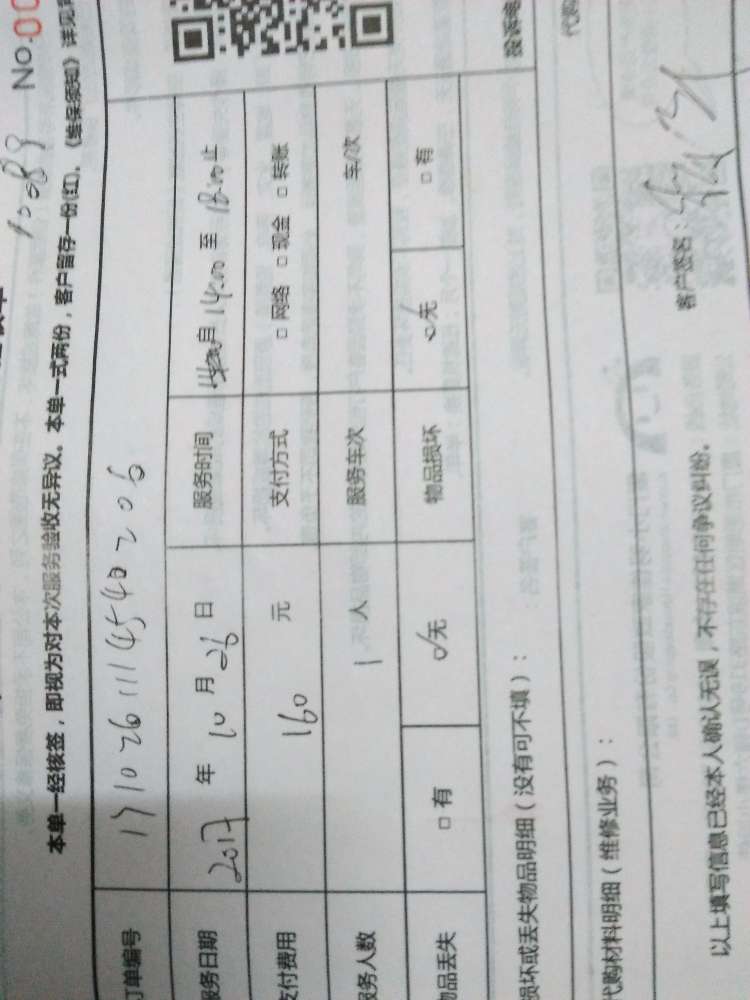 10089 No.00
本单一经核签，即视为对本次服务验收无异议。本单一式两份，客户留存一份(红)。《维保须知》详见背
订单编号 1710261114540206
服务日期 2017 年 10 月 26 日 服务时间 14:00 至 18:00 止
支付费用 160 元 支付方式 □ 网络 □ 现金 □ 转账
服务人数 1 人 服务车次 车/次
物品丢失 □ 有 □无 物品损坏 □无 □ 有
投诉电
损坏或丢失物品明细（没有可不填）：
代购材料明细（维修业务）：
代购
客户签名：
以上填写信息已经本人确认无误，不存在任何争议纠纷。